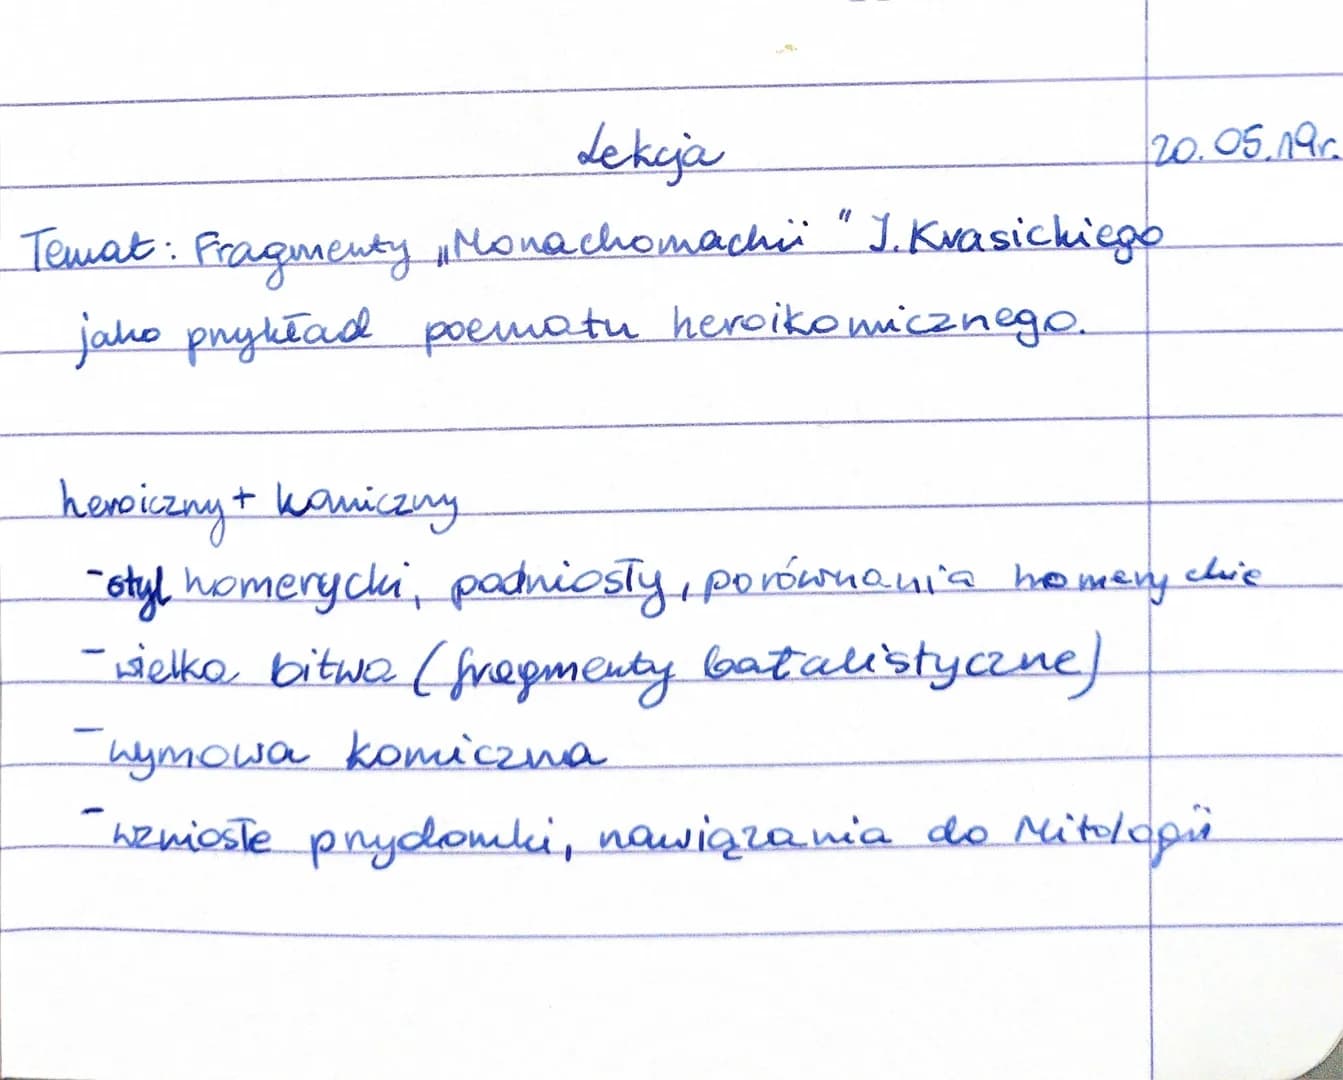 Lekcja 20.05.19r.
Temat: Fragmenty „Monachomachii" I. Krasickiego
jako przykład poematu heroikomicznego.
heroiczny + komiczny
- styl homerycki, podniosły, porównania homeryckie
- wielka bitwa (fragmenty batalistyczne)
- wymowa komiczna
- wzniosłe przydomki, nawiązania do Mitologii